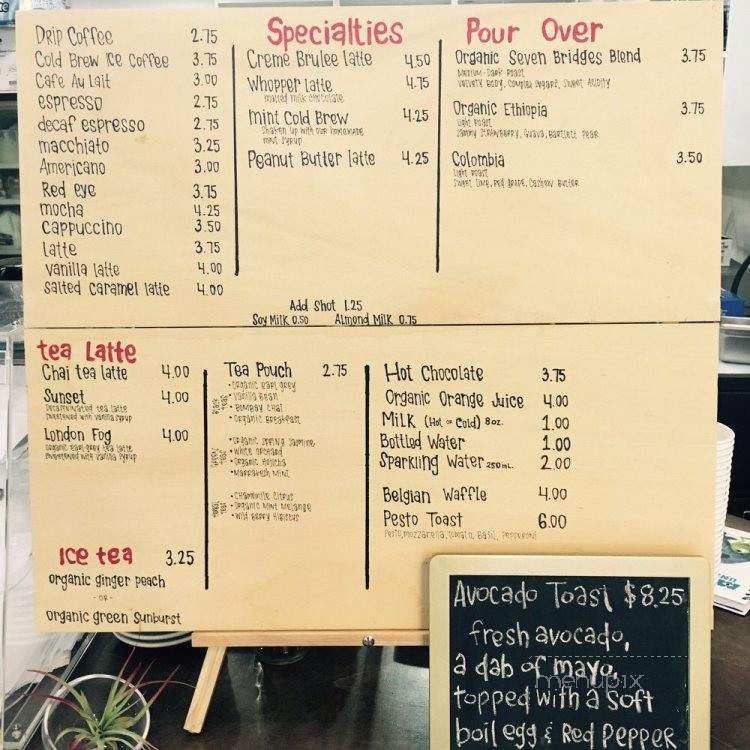 Drip Coffee 2.75
Cold Brew Ice Coffee 3.75
Cafe Au lait 3.00
espresso 2.75
decaf espresso 2.75
macchiato 3.25
Americano 3.00
Red eye 3.75
mocha 4.25
cappuccino 3.50
latte 3.75
vanilla latte 4.00
salted caramel latte 4.00
Specialties
Creme Brulee latte 4.50
Whopper latte 4.75
malted milk chocolate
mint Cold Brew 4.25
shaken up with our homemade
mint syrup
Peanut Butter latte 4.25
Pour Over
Organic Seven Bridges Blend 3.75
Medium-Dark Roast
Velvety Body, Complex Sugars, Sweet Acidity
Organic Ethiopia 3.75
Light Roast
Jammy Strawberry, Guava, Bartlett Pear
Colombia 3.50
Light Roast
Sweet Lime, Red Grape, Cashew Butter
Add Shot 1.25
Soy Milk 0.50 Almond Milk 0.75
tea Latte
Chai tea latte 4.00
Sunset 4.00
Decaffeinated tea latte
sweetened with vanilla syrup
London Fog 4.00
organic earl grey tea latte
sweetened with vanilla syrup
Ice tea 3.25
organic ginger peach
- OR -
organic green Sunburst
Tea Pouch 2.75
Black teas
• organic earl grey
• Vanilla Bean
• Bombay Chai
• organic Breakfast
• organic spring Jasmine
• white orchard
• organic Hojicha
• Marrakesh Mint
• Chamomile Citrus
• organic Mint Melange
• Wild Berry Hibiscus
Hot Chocolate 3.75
Organic Orange Juice 4.00
Milk (Hot or Cold) 8oz. 1.00
Bottled Water 1.00
Sparkling Water 250mL. 2.00
Belgian Waffle 4.00
Pesto Toast 6.00
Pesto, mozzarella, tomato, Basil, Pepperoni
Avocado Toast $8.25
fresh avocado,
a dab of mayo,
topped with a soft
boil egg & Red Pepper
menupix